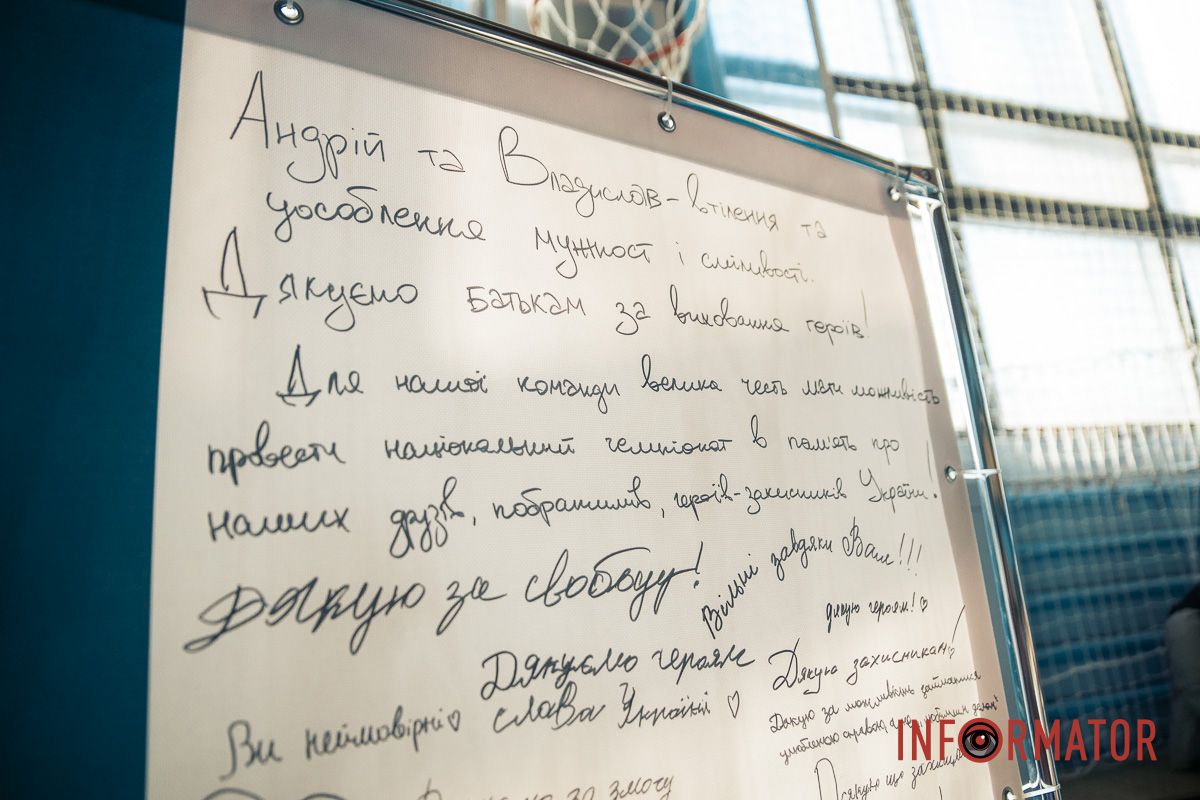 Андрій та Владислав - втілення та
уособлення мужності і сміливості.
Дякуємо батькам за виховання героїв!
Для нашої команди велика честь мати можливість
провести національний чемпіонат в пам'ять про
наших друзів, побратимів, героїв-захисників України!
Дякую за свободу!
Вільні завдяки Вам!!!
дякую героям! ♡
Дякуємо героям
Дякую захисникам!
Ви неймовірні ♡ слава Україні ♡
Дякую за можливість займатися
улюбленою справою,
за змогу
Дякую що
INFORMATOR